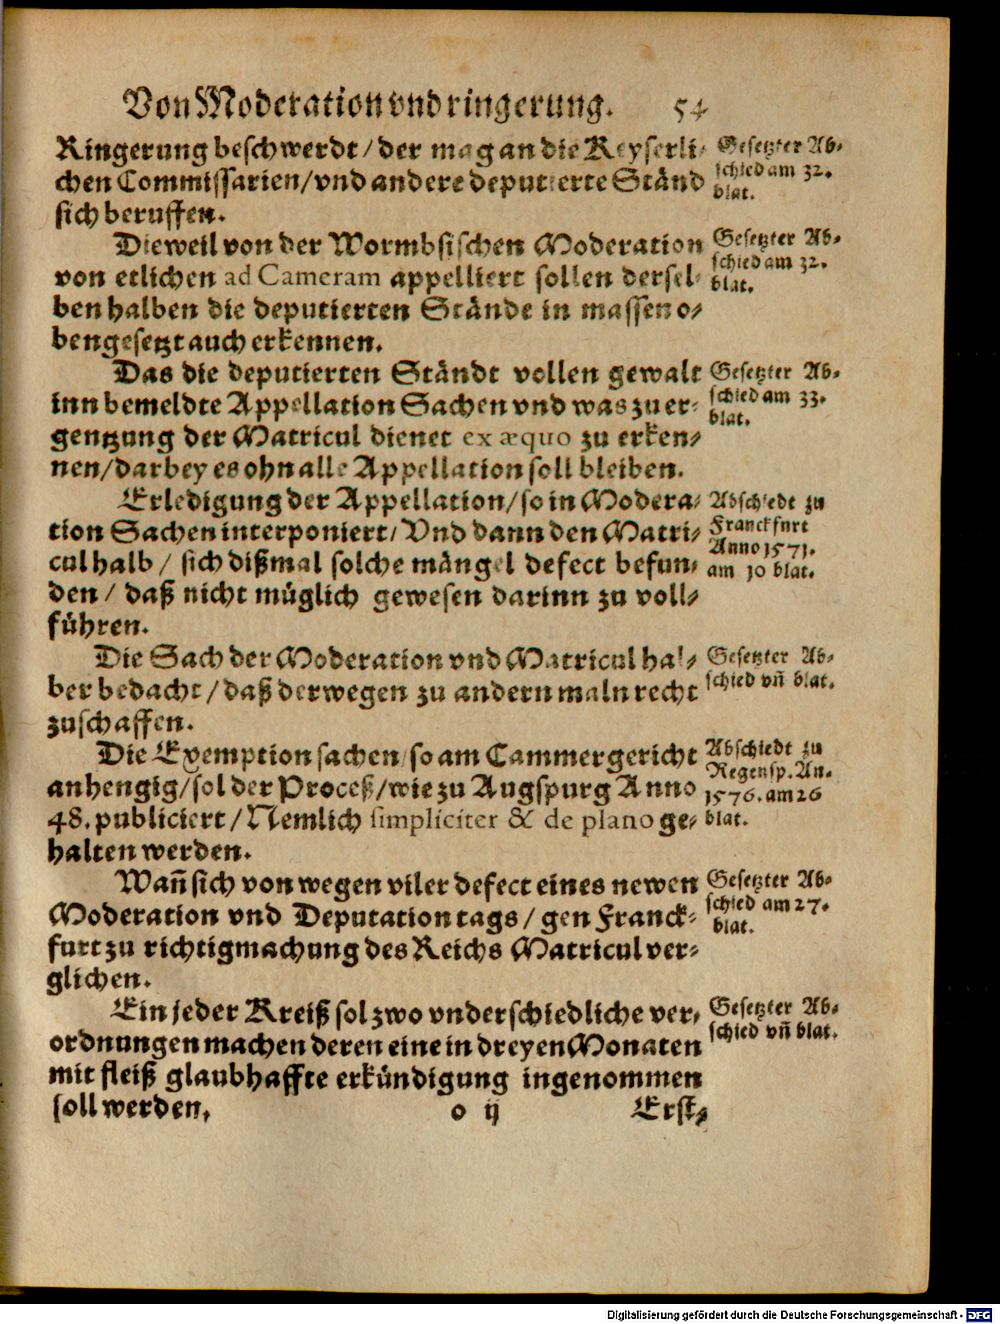 Von Moderation vnd ringerung. 54
Ringerung beschwerdt / der mag an die Keyserli-
chen Commissarien / vnd andere deputierte Ständ
sich beruffen.
Gesetzter Ab-
schied am 32.
blat.
Dieweil von der Wormbsischen Moderation
von etlichen ad Cameram appelliert sollen dersel-
ben halben die deputierten Stände in massen o-
bengesetzt auch erkennen.
Gesetzter Ab-
schied am 32.
blat.
Das die deputierten Ständt vollen gewalt
inn bemeldte Appellation Sachen vnd was zu er-
gentzung der Matricul dienet ex æquo zu erken-
nen / darbey es ohn alle Appellation soll bleiben.
Gesetzter Ab-
schied am 33.
blat.
Erledigung der Appellation / so in Modera-
tion Sachen interponiert / Vnd dann den Matri-
cul halb / sich dißmal solche mängel defect befun-
den / daß nicht müglich gewesen darinn zu voll-
führen.
Abschiedt zu
Franckfurt
Anno 1571.
am 10 blat.
Die Sach der Moderation vnd Matricul hal-
ber bedacht / daß derwegen zu andern maln recht
zuschaffen.
Gesetzter Ab-
schied vn̄ blat.
Die Exemption sachen / so am Cammergericht
anhengig / sol der Proceß / wie zu Augspurg Anno
48. publiciert / Nemlich simpliciter & de plano ge-
halten werden.
Abschiedt zu
Regensp. An.
1576. am 26
blat.
Wañ sich von wegen viler defect eines newen
Moderation vnd Deputation tags / gen Franck-
furt zu richtigmachung des Reichs Matricul ver-
glichen.
Gesetzter Ab-
schied am 27.
blat.
Ein jeder Kreiß sol zwo vnderschiedliche ver-
ordnungen machen deren eine in dreyen Monaten
mit fleiß glaubhaffte erkündigung ingenommen
soll werden,
Gesetzter Ab-
schied vn̄ blat.
o ij Erst-
Digitalisierung gefördert durch die Deutsche Forschungsgemeinschaft - DFG